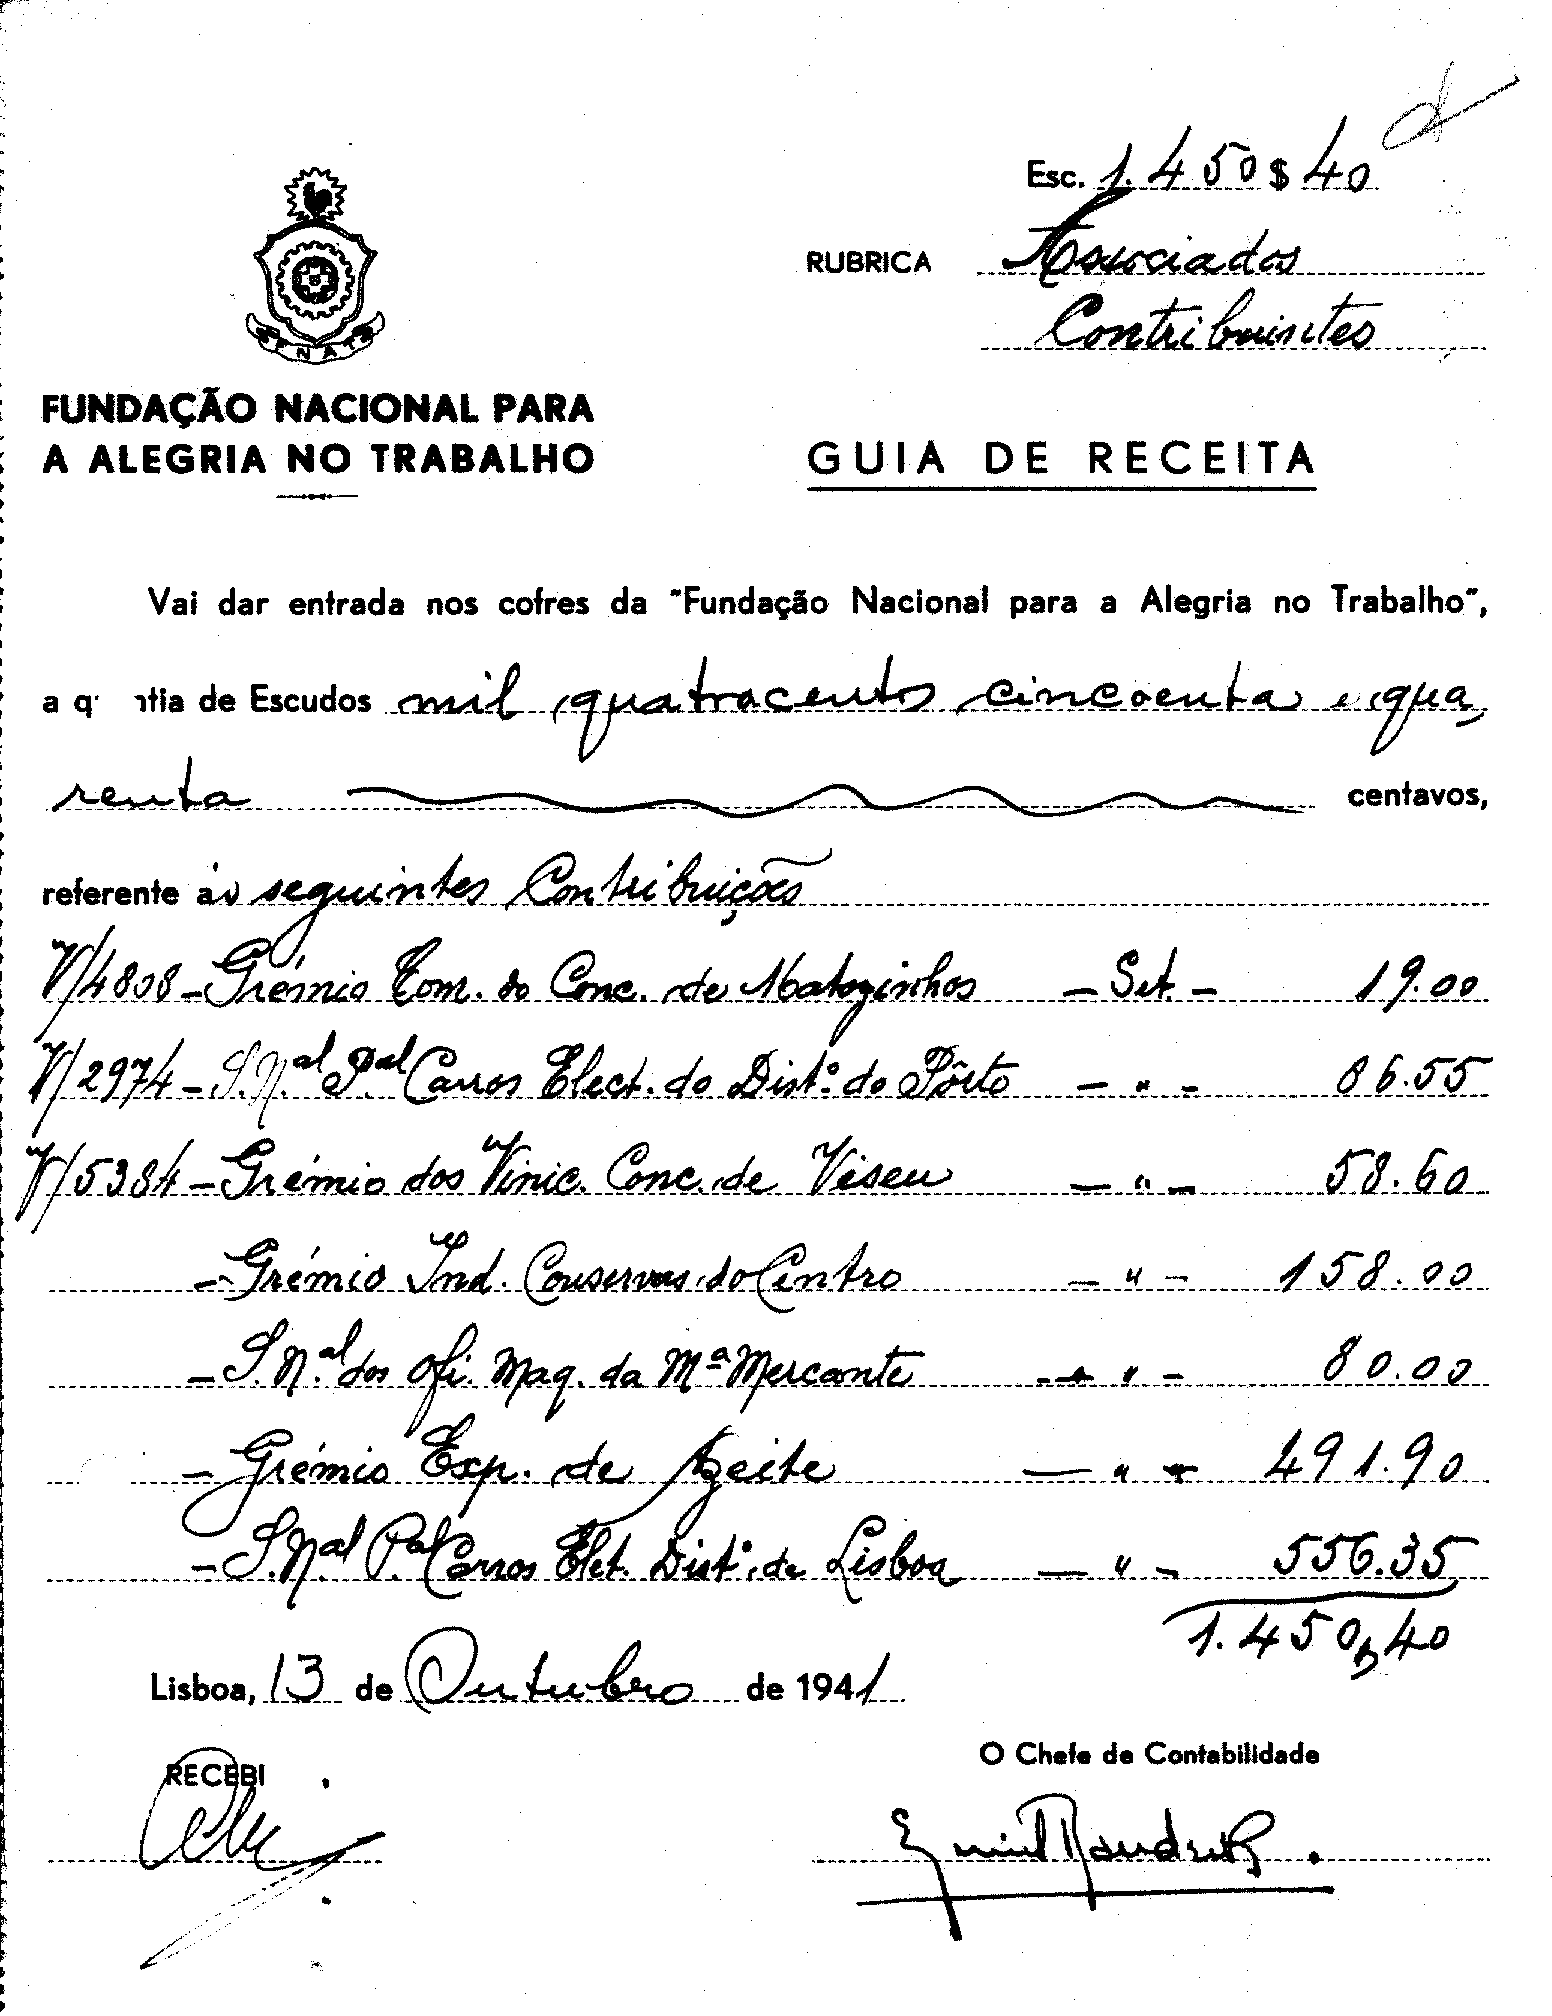 Esc. 1.450$40
RUBRICA Associados
Contribuintes
FNAT
FUNDAÇÃO NACIONAL PARA
A ALEGRIA NO TRABALHO
GUIA DE RECEITA
Vai dar entrada nos cofres da "Fundação Nacional para a Alegria no Trabalho",
a q ntia de Escudos mil quatrocentos cincoenta e qua
renta centavos,
referente às seguintes Contribuições
V/4808 - Grémio Com. do Conc. de Matozinhos - Set. - 19.00
V/2974 - S.N.al P.al Carros Elect. do Dist.º do Pôrto - " - 86.55
V/5384 - Grémio dos Vinic. Conc. de Viseu - " - 58.60
- Grémio Ind. Conservas do Centro - " - 158.00
- S.N.al dos Ofi. Maq. da Mª Mercante - " - 80.00
- Grémio Exp. de Azeite - " - 491.90
- S.N.al P.al Carros Elet. Dist.º de Lisboa - " - 556.35
1.450$40
Lisboa, 13 de Outubro de 1941
O Chefe de Contabilidade
RECEBI